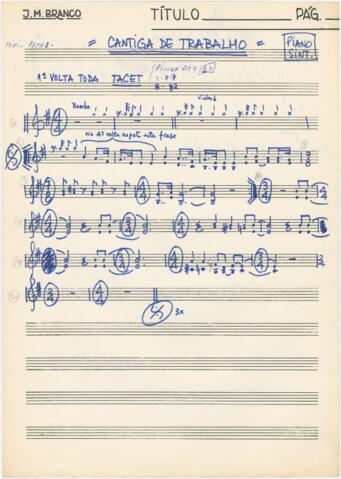 J.M. BRANCO TÍTULO PÁG.
= CANTIGA DE TRABALHO = PIANO SINT.
1ª VOLTA TODA TACET
Bombo
Na 4ª volta repete esta frase
3x